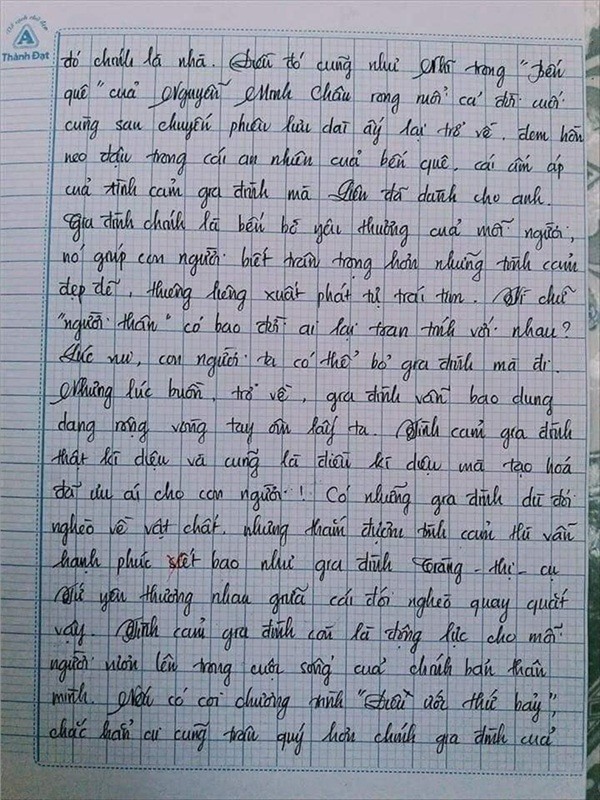 Vở sạch chữ đẹp
A
Thành Đạt
đó chính là nhà. Điều đó cũng như Nhĩ trong "Bến
quê" của Nguyễn Minh Châu rong ruổi cả đời cuối
cùng sau chuyến phiêu lưu dài ấy lại trở về, đem hồn
neo đậu trong cái an nhiên của bến quê, cái ấm áp
của tình cảm gia đình mà Liên đã dành cho anh.
Gia đình chính là bến bờ yêu thương của mỗi người,
nó giúp con người biết trân trọng hơn những tình cảm
đẹp đẽ, thương liêng xuất phát từ trái tim. Vì chữ
"người thân" có bao đời ai lại toan tính với nhau?
Lúc vui, con người ta có thể bỏ gia đình mà đi.
Nhưng lúc buồn, trở về, gia đình vẫn bao dung
dang rộng vòng tay ôm lấy ta. Tình cảm gia đình
thật kì diệu và cũng là điều kì diệu mà tạo hoá
đã ưu ái cho con người! Có những gia đình dù đói
nghèo về vật chất, nhưng thắm đượm tình cảm thì vẫn
hạnh phúc biết bao như gia đình Tràng - thị - cụ
Tứ yêu thương nhau giữa cái đói nghèo quay quắt
vậy. Tình cảm gia đình còn là động lực cho mỗi
người vươn lên trong cuộc sống của chính bản thân
mình. Nếu có coi chương trình "Điều ước thứ bảy",
chắc hẳn ai cũng trân quý hơn chính gia đình của